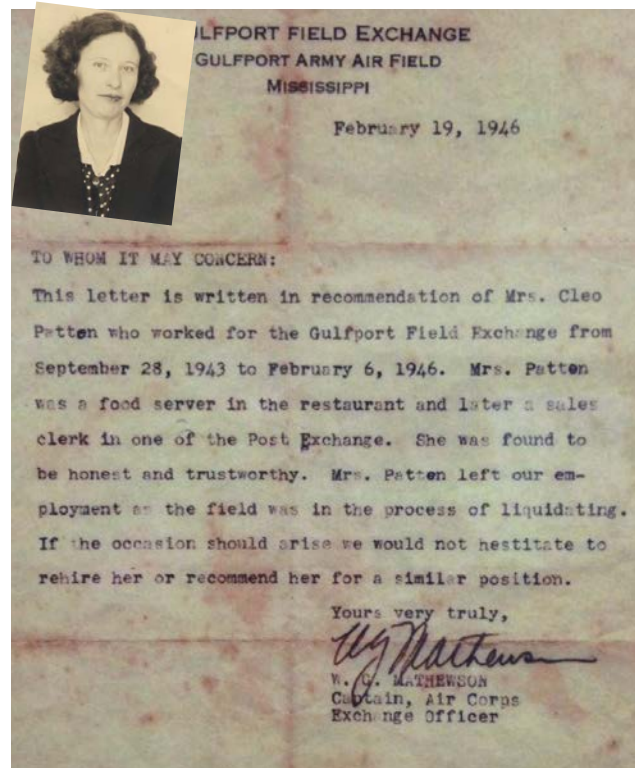 GULFPORT FIELD EXCHANGE
GULFPORT ARMY AIR FIELD
MISSISSIPPI
February 19, 1946
TO WHOM IT MAY CONCERN:
This letter is written in recommendation of Mrs. Cleo
Patten who worked for the Gulfport Field Exchange from
September 28, 1943 to February 6, 1946. Mrs. Patten
was a food server in the restaurant and later a sales
clerk in one of the Post Exchange. She was found to
be honest and trustworthy. Mrs. Patten left our em-
ployment as the field was in the process of liquidating.
If the occasion should arise we would not hestitate to
rehire her or recommend her for a similar position.
Yours very truly,
W. G. Mathewson
W. G. MATHEWSON
Captain, Air Corps
Exchange Officer